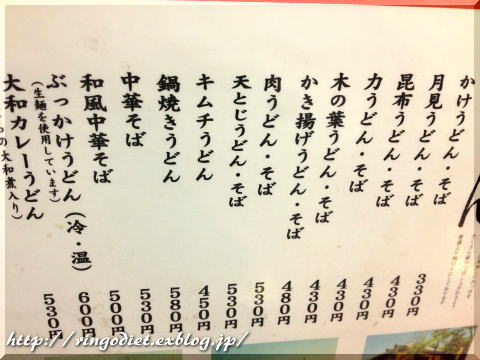 かけうどん・そば 330円
月見うどん・そば 430円
昆布うどん・そば 430円
力うどん・そば 430円
木の葉うどん・そば 430円
かき揚げうどん・そば 480円
肉うどん・そば 530円
天とじうどん・そば 530円
キムチうどん 450円
鍋焼きうどん 580円
中華そば 530円
和風中華そば 500円
ぶっかけうどん(冷・温) 600円
(生麺を使用しています)
大和カレーうどん 530円
の大和煮入り)
http://ringodiet.exblog.jp/